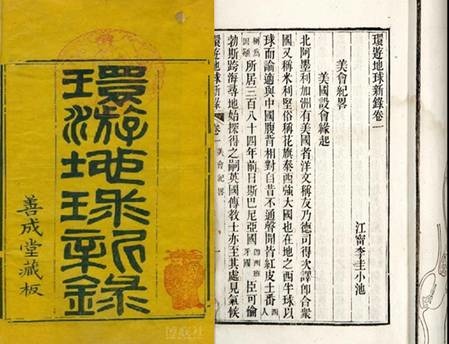 環游地球新錄
善成堂藏板
環遊地球新錄卷一
江甯李圭小池
美會紀畧
美國設會緣起
北阿墨利加洲有美國者洋文稱友乃德司得次譯即合衆
國又稱米利堅俗稱花旗泰西強大國也在地之西半球以
球而論適與中國腹背相對自昔不通聲聞皆紅皮土番
所居三百八十四年前日斯巴尼亞國即西班牙國臣可倫
勃斯跨海尋地始探得之嗣英國傳教士亦至其處見氣候
環遊地球新錄 卷一 美會紀畧